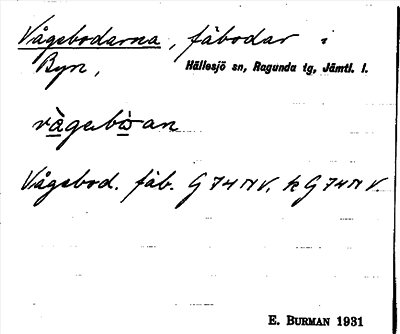 Vågebodarna, fäbodar i
Byn, Hällesjö sn, Ragunda tg, Jämtl. l.
vàgebòan
Vågebod. fäb. G 74 NV, k G 74 N V.
E. BURMAN 1931